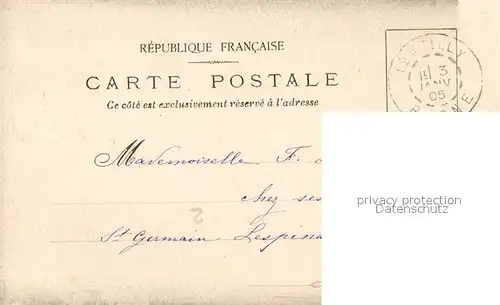 RÉPUBLIQUE FRANÇAISE
CARTE POSTALE
Ce côté est exclusivement réservé à l'adresse
3
JANV
05
Mademoiselle F.
chez ses
St Germain
privacy protection
Datenschutz
2